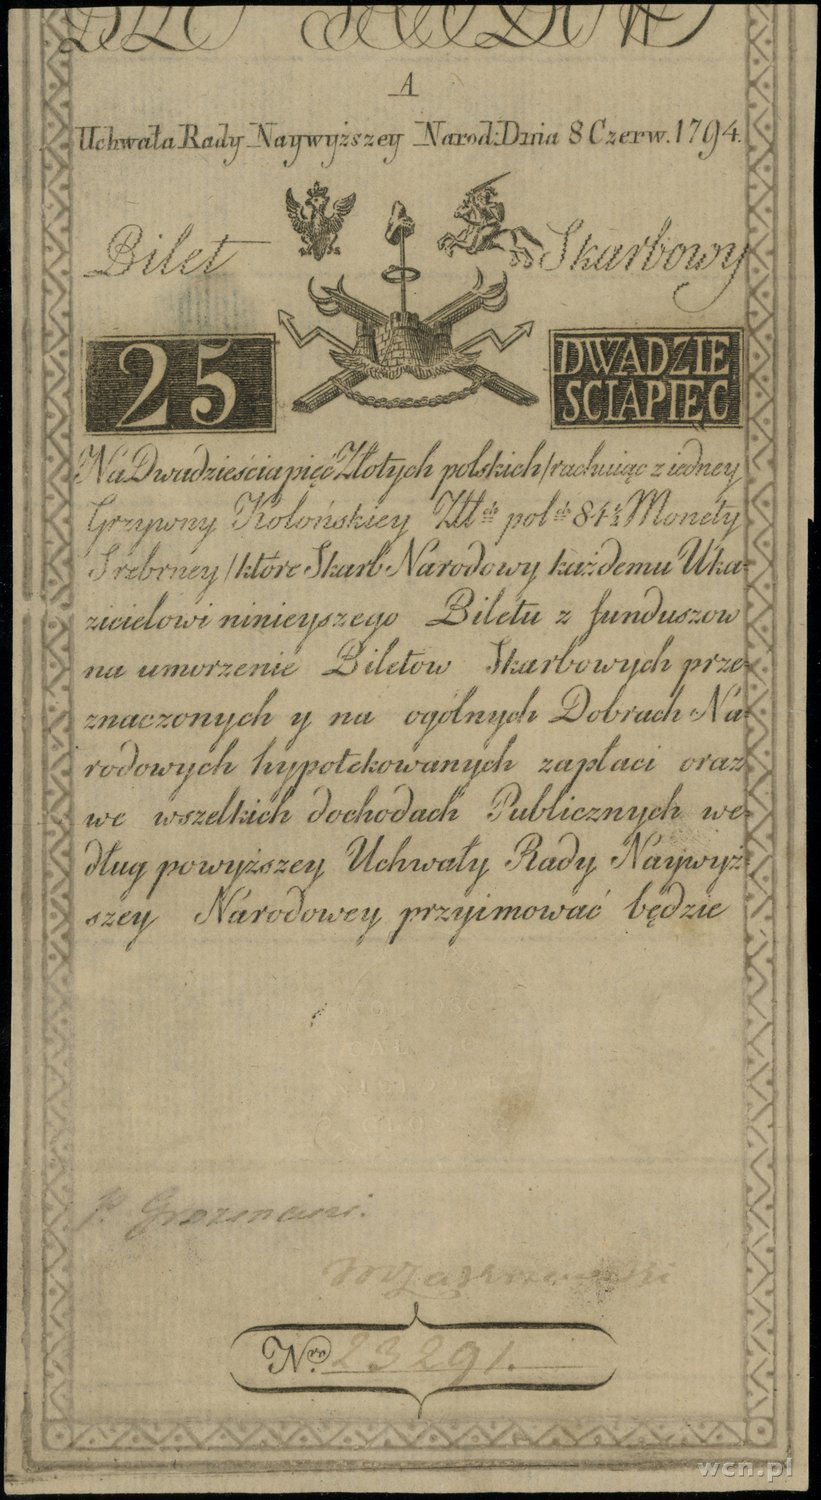 A
Uchwała Rady Naywyższey Narod: Dnia 8 Czerw. 1794.
Bilet Skarbowy
25
DWADZIE
SCIAPIEC
Na Dwudzieścia pięć Złotych polskich / rachuiąc z iedney
Grzywny Kolońskiey Złł ch pol ch 84½ Monety
Srebrney / które Skarb Narodowy każdemu Uka-
zicielowi ninieyszego Biletu z funduszow
na umorzenie Biletow Skarbowych prze-
znaczonych y na ogólnych Dobrach Na-
rodowych hypotekowanych zapłaci oraz
we wszelkich dochodach Publicznych we-
dług powyższey Uchwały Rady Naywyż-
szey Narodowey przyimować będzie
Nro 23291.
wcn.pl